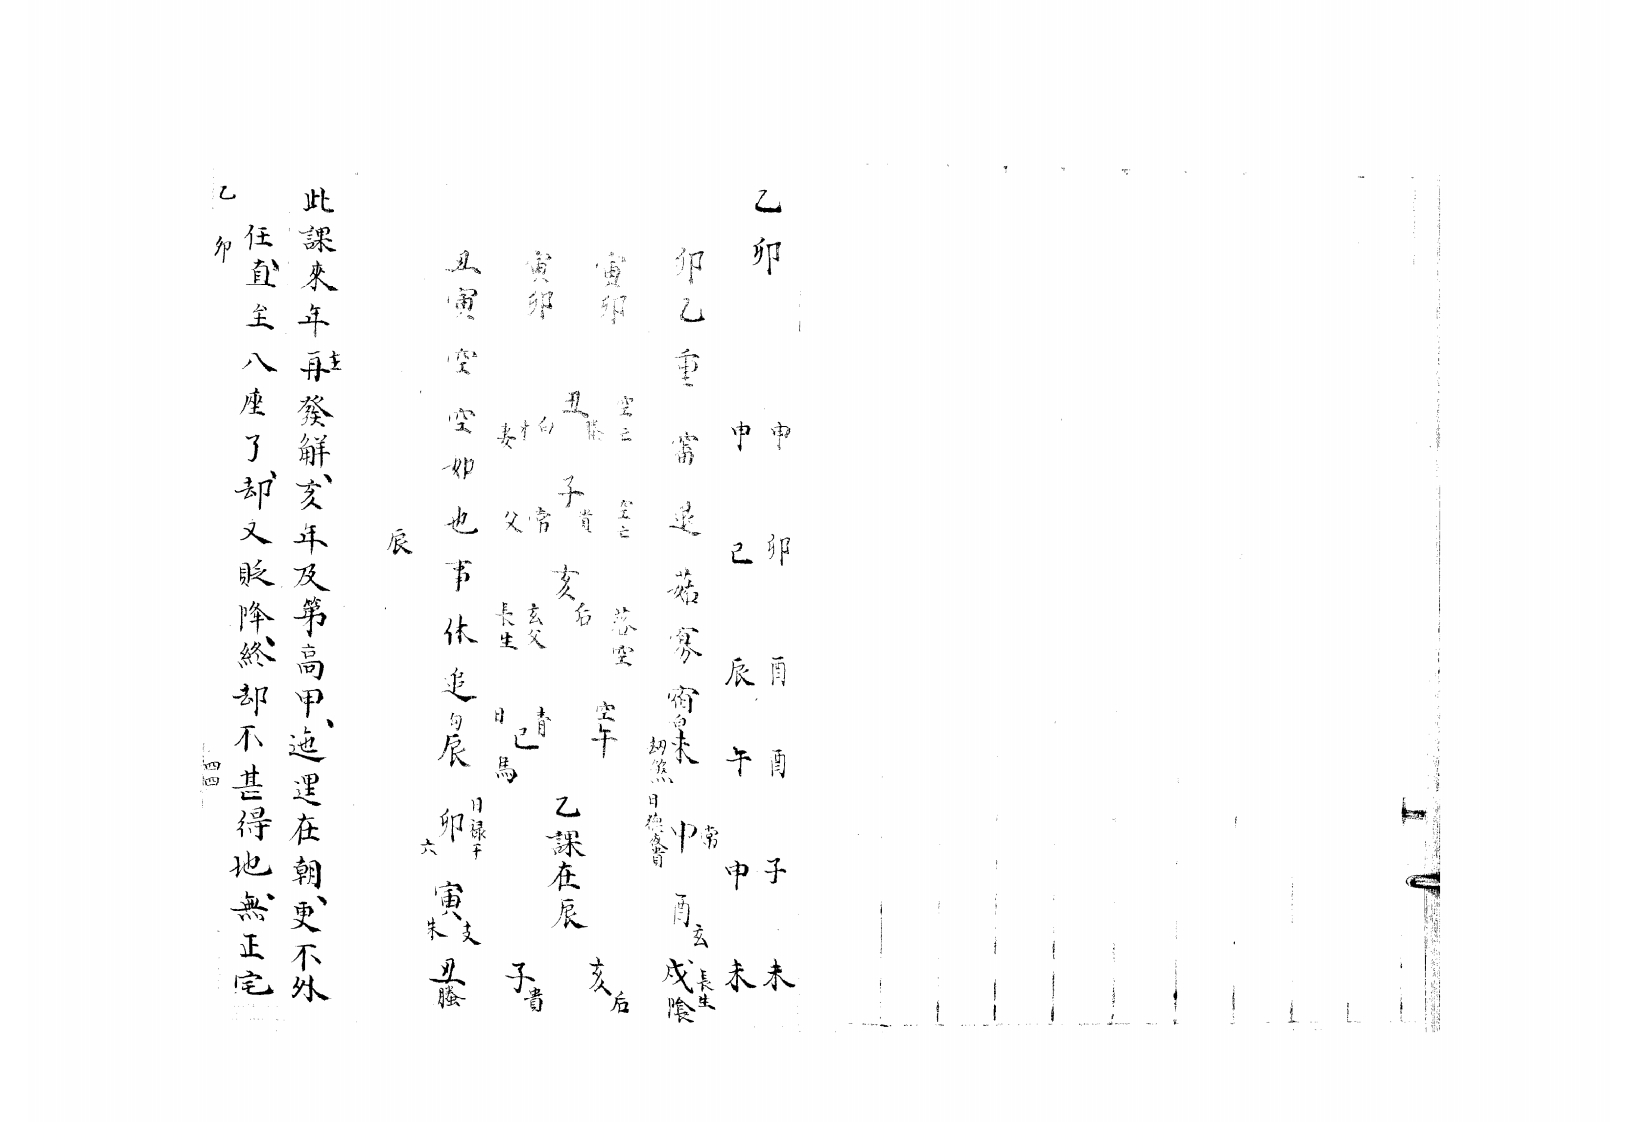 乙卯
申卯酉酉子未
申已辰午申未
卯乙重
寅卯
寅卯
丑寅空空如也事休追
空亡
丑
白
妻
空亡
子貴
常
父
落空
亥后
玄父
長生
空午
青
巳
日馬
白未
劫煞
申常
日德
酉玄
戌陰
長生
亥后
子貴
丑螣
寅朱
支
卯六
日祿干
勾辰
乙課在辰
辰
此課來年再主發解亥年及第高甲迤邐在朝更不外
任直至八座了却又貶降終却不甚得地無正宅
乙卯
四四